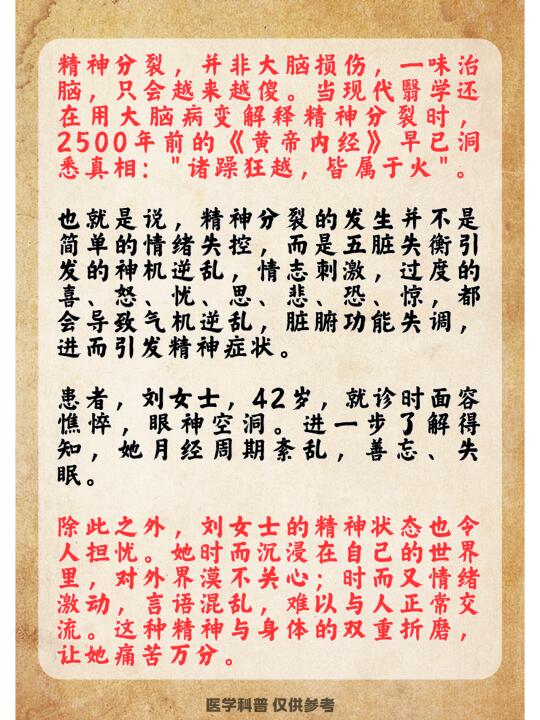 精神分裂，并非大脑损伤，一味治
脑，只会越来越傻。当现代翳学还
在用大脑病变解释精神分裂时，
2500年前的《黄帝内经》早已洞
悉真相："诸躁狂越，皆属于火"。
也就是说，精神分裂的发生并不是
简单的情绪失控，而是五脏失衡引
发的神机逆乱，情志刺激，过度的
喜、怒、忧、思、悲、恐、惊，都
会导致气机逆乱，脏腑功能失调，
进而引发精神症状。
患者，刘女士，42岁，就诊时面容
憔悴，眼神空洞。进一步了解得
知，她月经周期紊乱，善忘、失
眠。
除此之外，刘女士的精神状态也令
人担忧。她时而沉浸在自己的世界
里，对外界漠不关心；时而又情绪
激动，言语混乱，难以与人正常交
流。这种精神与身体的双重折磨，
让她痛苦万分。
医学科普 仅供参考